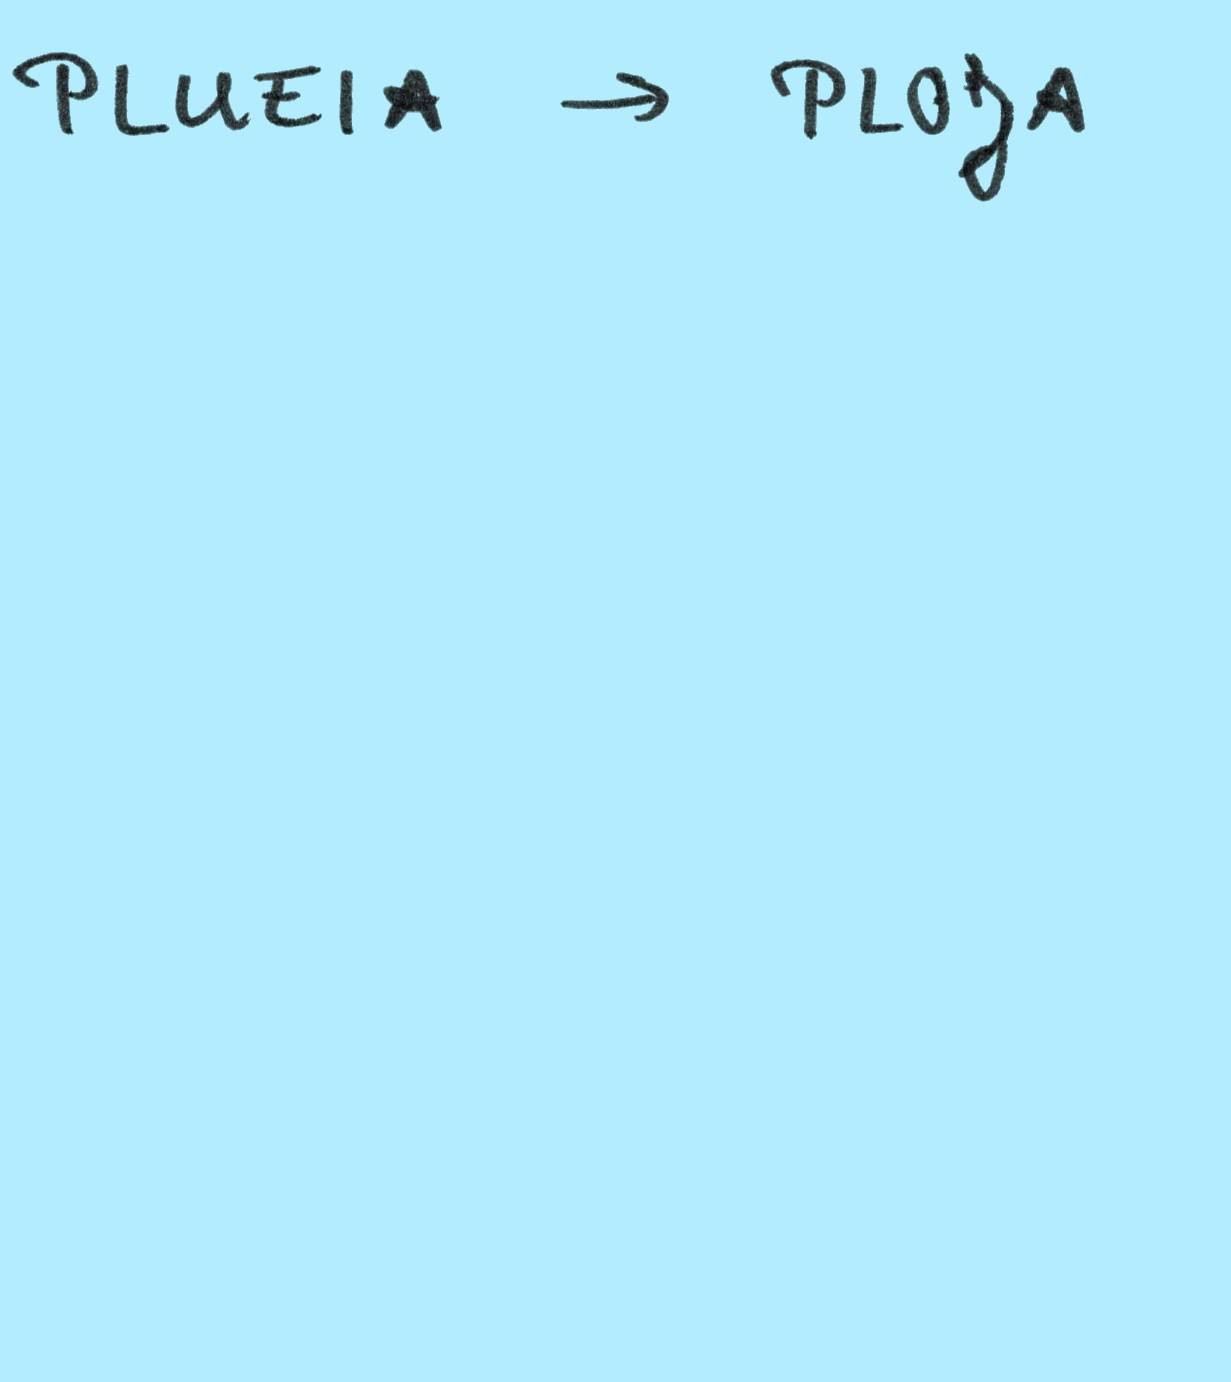 PLUEIA → PLOJA